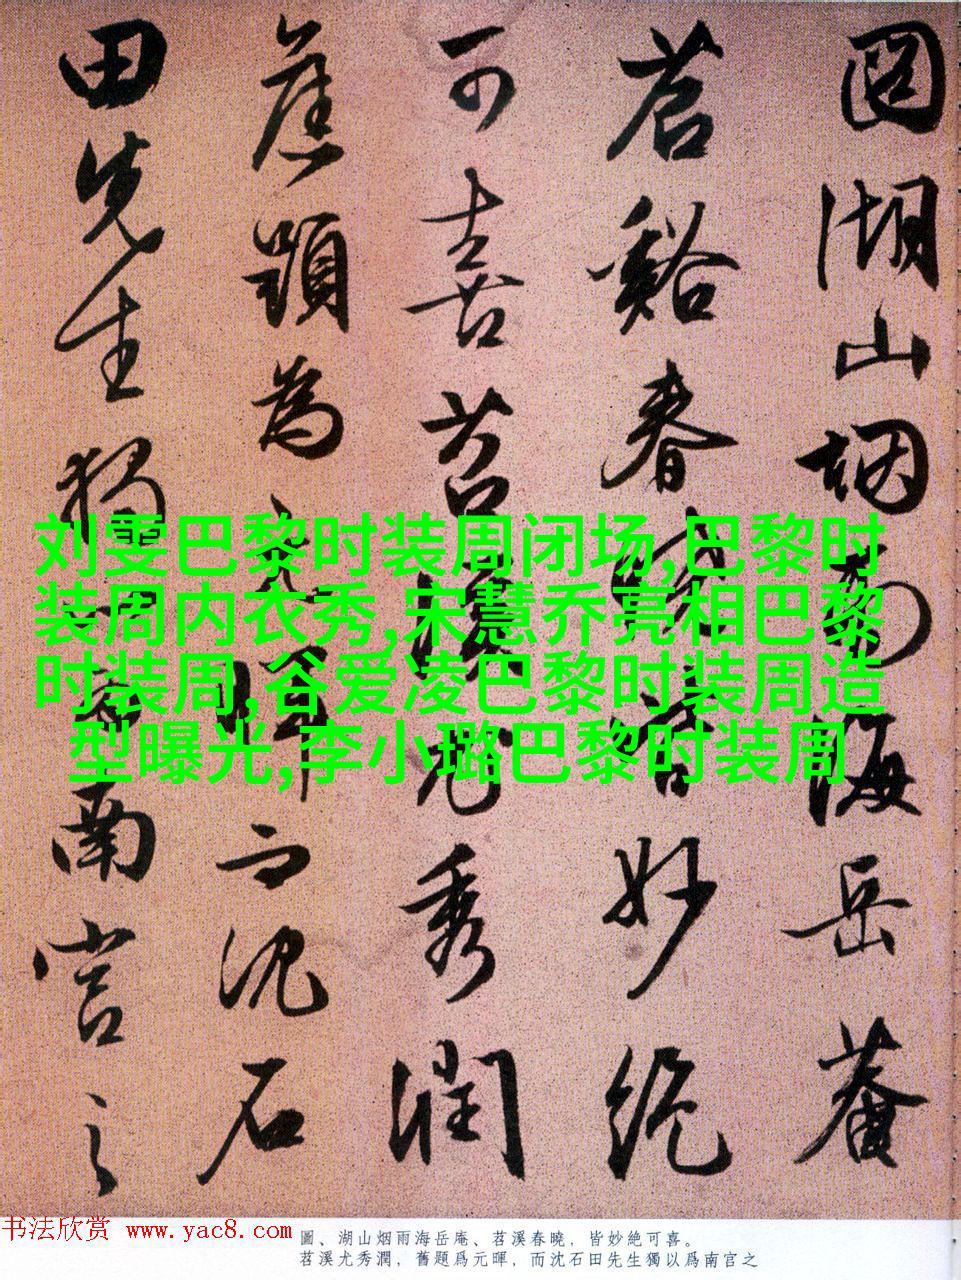 圖湖山烟雨海岳菴
苕谿春曉皆妙絶
可喜苕溪尤秀潤
舊題為元暉而沈石
田先生獨以為南宮之
刘雯巴黎时装周闭场,巴黎时
装周内衣秀,宋慧乔亮相巴黎
时装周,谷爱凌巴黎时装周造
型曝光,李小璐巴黎时装周
书法欣赏 www.yac8.com
圖、湖山烟雨海岳庵、苕溪春曉，皆妙絶可喜。
苕溪尤秀潤，舊題爲元暉，而沈石田先生獨以爲南宫之